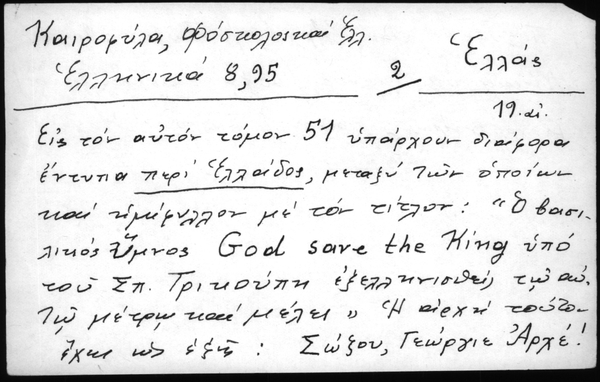 Καιροφύλα, Φόσκολος καί Ἑλλ.
Ἑλληνικά 8,95
2
Ἑλλάς
19. αἰ.
Εἰς τόν αὐτόν τόμον 51 ὑπάρχουν διάφορα
ἔντυπα περί Ἑλλάδος, μεταξύ τῶν ὁποίων
καί ἡμίφυλλον μέ τόν τίτλον: "Ὁ βασι-
λικός Ὕμνος God save the King ὑπό
τοῦ Σπ. Τρικούπη ἐξελληνισθείς τῷ αὐ-
τῷ μέτρῳ καί μέλει" Ἡ ἀρχή τούτου
ἔχει ὡς ἑξῆς: Σώζου, Γεώργιε Ἀρχέ!